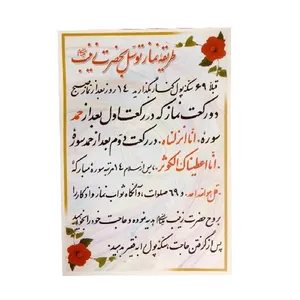 طریقه نماز توسل بحضرت زینب
قبلاً ۶۹ سکه پول کنار بگذارید ۱۴ روز بعد از نماز صبح
دو رکعت نماز که در رکعت اول بعد از حمد
سوره، انا انزلناه، در رکعت دوم بعد از حمد سوره
انا اعطیناک الکوثر، پس از سلام ۱۴ مرتبه سوره مبارکه
قل هو الله احد، و ۶۹ صلوات، وآنگاه ثواب نماز و اذکار را
بروح حضرت زینب هدیه نموده و حاجت خود را بخواهید
پس از گرفتن حاجت، سکه پول را به فقیر بدهید.